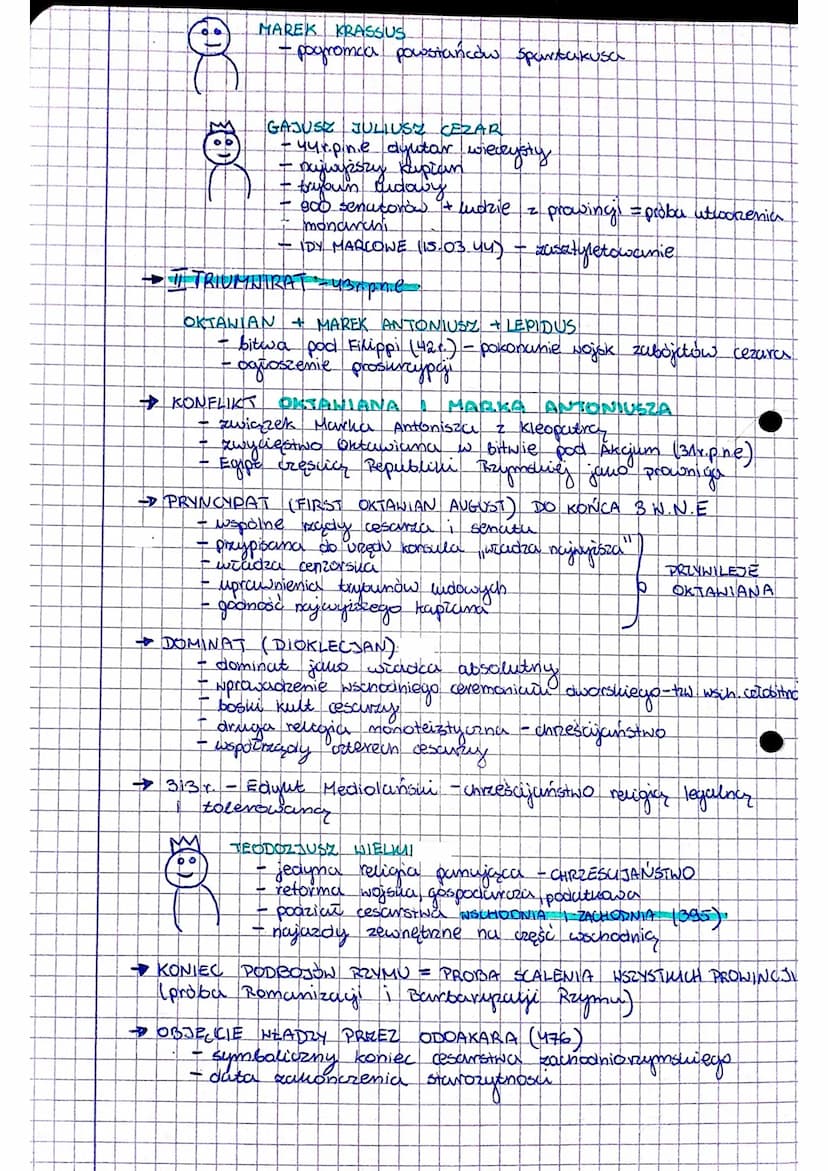 MAREK KRASSUS
- pogromca powstańców Spartakusa
GAJUSZ JULIUSZ CEZAR
- 44r.p.n.e dyktator wieczysty
- najwyższy kapłan
- trybun ludowy
- 900 senatorów + ludzie z prowincji = próba utworzenia
monarchi
- IDY MARCOWE (15.03.44) - zasztyletowanie
→ II TRIUMWIRAT - 43r.p.n.e
OKTAWIAN + MAREK ANTONIUSZ + LEPIDUS
- bitwa pod Filippi (42r.) - pokonanie wojsk zabójców cezara
- ogłoszenie proskrypcji
→ KONFLIKT OKTAWIANA I MARKA ANTONIUSZA
- związek Marka Antonisza z Kleopatrą
- zwycięstwo Oktawiana w bitwie pod Akcjum (31r.p.ne)
- Egipt częścią Republiki Rzymskiej jako prowincja
→ PRYNCYPAT (FIRST OKTAWIAN AUGUST) DO KOŃCA 3 W.N.E
- wspólne rządy cesarza i senatu
- przypisana do urzędu konsula „władza najwyższa"
- władza cenzorska
- uprawnienia trybunów ludowych
- godność najwyższego kapłana
PRZYWILEJE
OKTAWIANA
→ DOMINAT (DIOKLECJAN)
- dominat jako władca absolutny
- wprowadzenie wschodniego ceremoniału dworskiego - tzw. wsch.
- boski kult cesarzy
- druga religia monoteistyczna - chrześcijaństwo
- współrządy czterech cesarzy
→ 313r. - Edykt Mediolański - chrześcijaństwo religią legalną
i tolerowaną
TEODOZJUSZ WIELKI
- jedyna religia panująca - CHRZEŚCIJAŃSTWO
- reforma wojska, gospodarcza, podatkowa
- podział cesarstwa WSCHODNIA I ZACHODNIA (395)
- najazdy zewnętrzne na część wschodnią
→ KONIEC PODBOJÓW RZYMU = PRÓBA SCALENIA WSZYSTKICH PROWINCJI
(próba Romanizacji i Barbaryzacji Rzymu)
→ OBJĘCIE WŁADZY PRZEZ ODOAKARA (476)
- symboliczny koniec cesarstwa zachodniorzymskiego
- data zakończenia starożytności